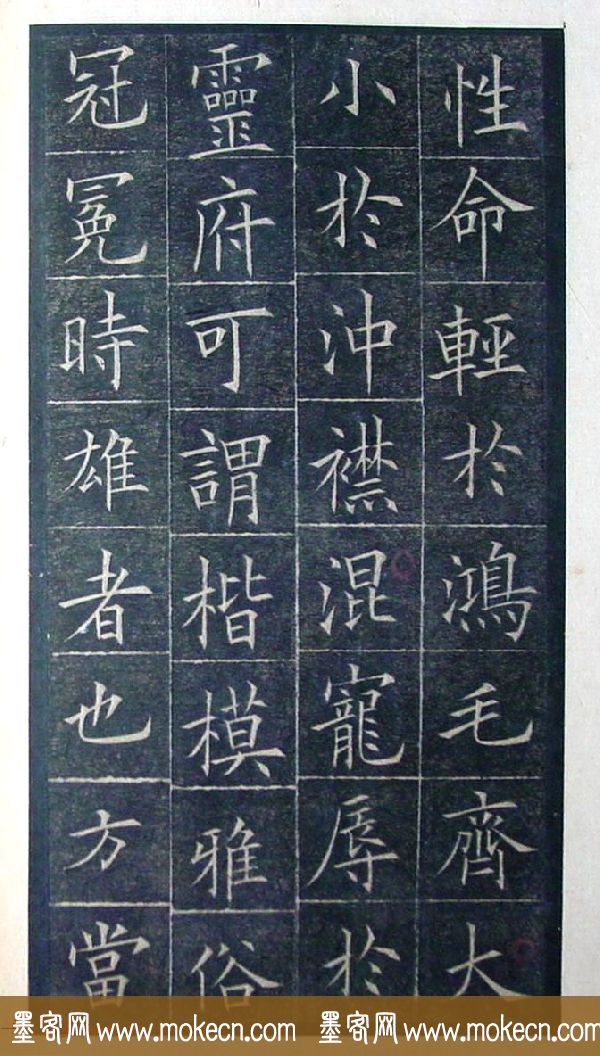 性命輕於鴻毛齊大
小於沖襟混寵辱於
靈府可謂楷模雅俗
冠冕時雄者也方當
墨客网 www.mokecn.com 墨客网 www.mokecn.com